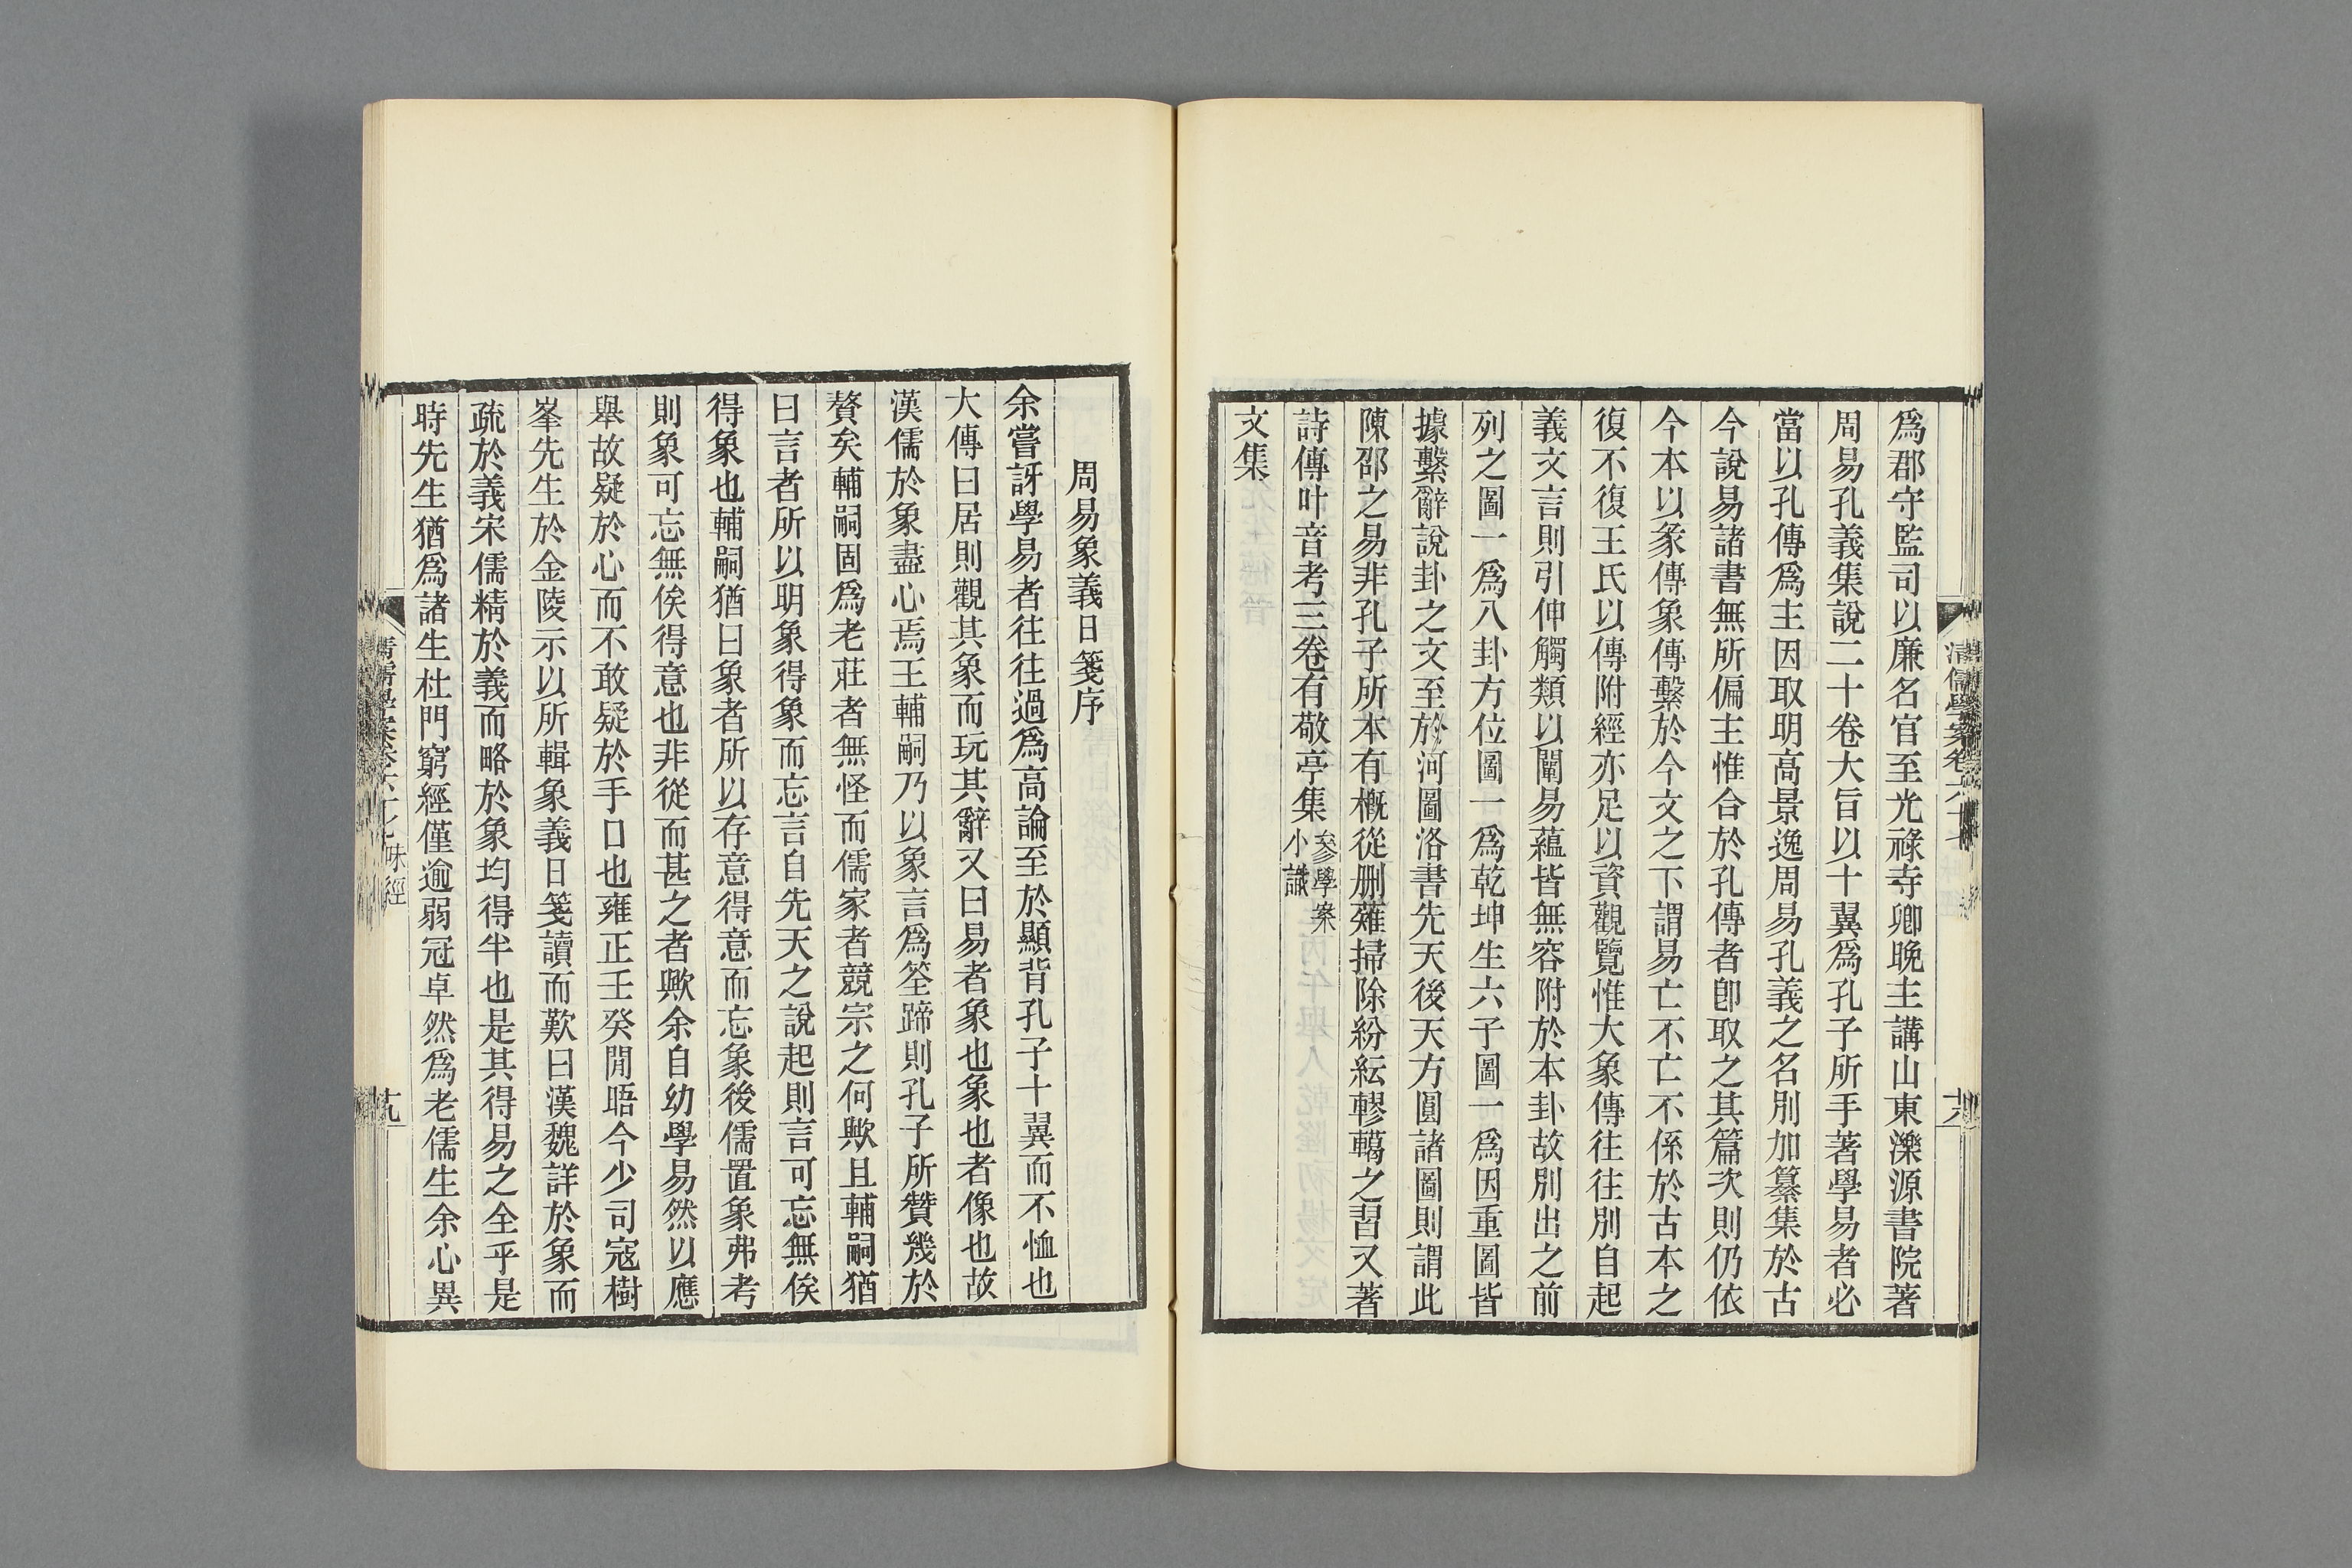 清儒學案卷六十七
十八
爲郡守監司以廉名官至光祿寺卿晚主講山東濼源書院著
周易孔義集說二十卷大旨以十翼爲孔子所手著學易者必
當以孔傳爲主因取明高景逸周易孔義之名別加纂集於古
今說易諸書無所偏主惟合於孔傳者卽取之其篇次則仍依
今本以彖傳象傳繫於今文之下謂易亡不亡不係於古本之
復不復王氏以傳附經亦足以資觀覽惟大象傳往往別自起
義文言則引伸觸類以闡易蘊皆無容附於本卦故別出之前
列之圖一爲八卦方位圖一爲乾坤生六子圖一爲因重圖皆
據繫辭說卦之文至於河圖洛書先天後天方圓諸圖則謂此
陳邵之易非孔子所本有槪從删薙掃除紛紜轇轕之習又著
詩傳叶音考三卷有敬亭集參學案
小識
文集
周易象義日箋序
余嘗訝學易者往往過爲高論至於顯背孔子十翼而不恤也
大傳曰居則觀其象而玩其辭又曰易者象也象也者像也故
漢儒於象盡心焉王輔嗣乃以象言爲筌蹄則孔子所贊幾於
贅矣輔嗣固爲老莊者無怪而儒家者競宗之何歟且輔嗣猶
曰言者所以明象得象而忘言自先天之說起則言可忘無俟
得象也輔嗣猶曰象者所以存意得意而忘象後儒置象弗考
則象可忘無俟得意也非從而甚之者歟余自幼學易然以應
舉故疑於心而不敢疑於手口也雍正壬癸閒晤今少司寇樹
峯先生於金陵示以所輯象義日箋讀而歎曰漢魏詳於象而
疏於義宋儒精於義而略於象均得半也是其得易之全乎是
時先生猶爲諸生杜門窮經僅逾弱冠卓然爲老儒生余心異
清儒學案卷六十七 味經
十九